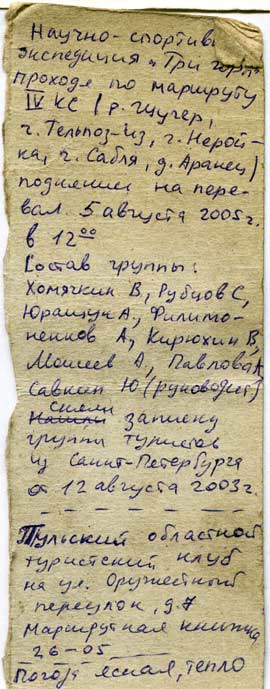 Научно-спортивн
экспедиция "Три
проходя по маршруту
IV КС (р. Щугер,
г. Тельпоз-из, г. Неройка,
ка, г. Сабля, д. Аранец)
поднялись на пере-
вал. 5 августа 2005г.
в 12⁰⁰
Состав группы:
Хомячкин В, Рубцов С,
Юращук А, Филимо-
ненков А, Кирюхин В,
Моисеев А, Павлова А
Савкин Ю (руководит)
Сняли
записку
группы туристов
из Санкт-Петербурга
от 12 августа 2003г.
Тульский областной
туристский клуб
на ул. Оружестный
переулок, д.7
маршрутная книжка
26-05
Погода ясная, тепло